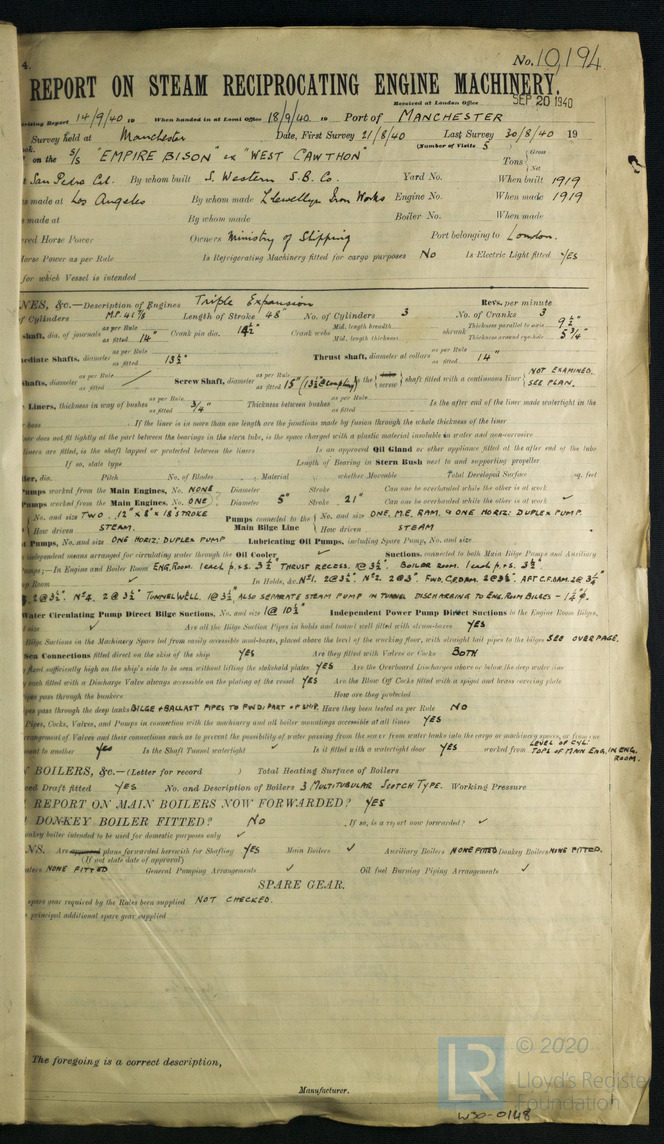 4. No. 10,194
REPORT ON STEAM RECIPROCATING ENGINE MACHINERY.
Received at London Office SEP 20 1940
Writing Report 14/9/40 19 When handed in at Local Office 18/9/40 19 Port of MANCHESTER
Survey held at Manchester Date, First Survey 21/8/40 Last Survey 30/8/40 19
(Number of Visits 5
on the S/S "EMPIRE BISON" ex "WEST CAWTHON" Tons { Gross
Net
San Pedro Cal. By whom built S. Western S.B. Co. Yard No. When built 1919
made at Los Angeles By whom made Llewellyn Iron Works Engine No. When made 1919
made at By whom made Boiler No. When made
Horse Power Owners Ministry of Shipping Port belonging to London.
Horse Power as per Rule Is Refrigerating Machinery fitted for cargo purposes NO Is Electric Light fitted YES
for which Vessel is intended
NES, &c.—Description of Engines Triple Expansion Revs. per minute
of Cylinders M.P. 41⅝ Length of Stroke 48" No. of Cylinders 3 No. of Cranks 3
shaft, dia. of journals as per Rule as fitted 14" Crank pin dia. 14½" Crank webs Mid. length breadth Mid. length thickness shrunk Thickness parallel to axis 9½" Thickness around eye-hole 5¾"
mediate Shafts, diameter as per Rule as fitted 13½" Thrust shaft, diameter at collars as per Rule as fitted 14"
Shafts, diameter as per Rule as fitted Screw Shaft, diameter as per Rule as fitted 15" (13½ @ coupling) Is the screw shaft fitted with a continuous liner { NOT EXAMINED. SEE PLAN.
Liners, thickness in way of bushes as per Rule as fitted ¾" Thickness between bushes as per Rule as fitted Is the after end of the liner made watertight in the
boss If the liner is in more than one length are the junctions made by fusion through the whole thickness of the liner
liner does not fit tightly at the part between the bearings in the stern tube, is the space charged with a plastic material insoluble in water and non-corrosive
liners are fitted, is the shaft lapped or protected between the liners Is an approved Oil Gland or other appliance fitted at the after end of the tube
If so, state type Length of Bearing in Stern Bush next to and supporting propeller
dia. Pitch No. of Blades Material whether Moveable Total Developed Surface sq. feet
Pumps worked from the Main Engines, No. NONE Diameter Stroke Can one be overhauled while the other is at work
Pumps worked from the Main Engines, No. ONE Diameter 5" Stroke 21" Can one be overhauled while the other is at work ✓
No. and size TWO. 12" x 8" x 18" STROKE Pumps connected to the Main Bilge Line { No. and size ONE, M.E. RAM. & ONE HORIZ: DUPLEX PUMP.
How driven STEAM. How driven STEAM
Pumps, No. and size ONE HORIZ: DUPLEX PUMP Lubricating Oil Pumps, including Spare Pump, No. and size
independent means arranged for circulating water through the Oil Cooler ✓ Suctions, connected to both Main Bilge Pumps and Auxiliary
Pumps;—In Engine and Boiler Room ENG. ROOM. 1 each p.&s. 3½" THRUST RECESS. 1@ 3½". BOILER ROOM. 1 each p.&s. 3½"
Room ✓ In Holds, &c. Nº1. 2@ 3½". Nº2. 2@ 3". FWD. C.F. DAM. 2@ 3½". AFT C.F. DAM. 2@ 3½"
2@ 3½" Nº4. 2@ 3½" TUNNEL WELL. 1@ 3½", ALSO SEPARATE STEAM PUMP IN TUNNEL DISCHARGING TO ENG. ROOM BILGES –
Water Circulating Pump Direct Bilge Suctions, No. and size 1@ 10½" Independent Power Pump Direct Suctions to the Engine Room Bilges,
size Are all the Bilge Suction Pipes in holds and tunnel well fitted with strum-boxes YES
Bilge Suctions in the Machinery Space led from easily accessible mud-boxes, placed above the level of the working floor, with straight tail pipes to the bilges SEE OVER PAGE.
Sea Connections fitted direct on the skin of the ship YES Are they fitted with Valves or Cocks BOTH
fixed sufficiently high on the ship's side to be seen without lifting the stokehold plates YES Are the Overboard Discharges above or below the deep water line
each fitted with a Discharge Valve always accessible on the plating of the vessel YES Are the Blow Off Cocks fitted with a spigot and brass covering plate
pipes pass through the bunkers How are they protected
pipes pass through the deep tanks BILGE & BALLAST PIPES TO FWD: PART OF SHIP. Have they been tested as per Rule NO
Pipes, Cocks, Valves, and Pumps in connection with the machinery and all boiler mountings accessible at all times YES
arrangement of Valves and their connections such as to prevent the possibility of water passing from the sea or from water tanks into the cargo or machinery spaces, or from one
to another YES Is the Shaft Tunnel watertight ✓ Is it fitted with a watertight door YES worked from LEVEL OF CYL. TOPS OF MAIN ENG. IN ENG. ROOM.
BOILERS, &c.—(Letter for record ) Total Heating Surface of Boilers
Draft fitted YES No. and Description of Boilers 3 MULTITUBULAR SCOTCH TYPE. Working Pressure
REPORT ON MAIN BOILERS NOW FORWARDED? YES
DONKEY BOILER FITTED? NO If so, is a report now forwarded? ✓
donkey boiler intended to be used for domestic purposes only ✓
NS. Are approved plans forwarded herewith for Shafting YES Main Boilers ✓ Auxiliary Boilers NONE FITTED Donkey Boilers NONE FITTED.
(If not state date of approval)
NONE FITTED General Pumping Arrangements ✓ Oil fuel Burning Piping Arrangements ✓
SPARE GEAR.
spare gear required by the Rules been supplied NOT CHECKED.
principal additional spare gear supplied
The foregoing is a correct description,
Manufacturer.
LR © 2020
Lloyd's Register
Foundation
W30-0148